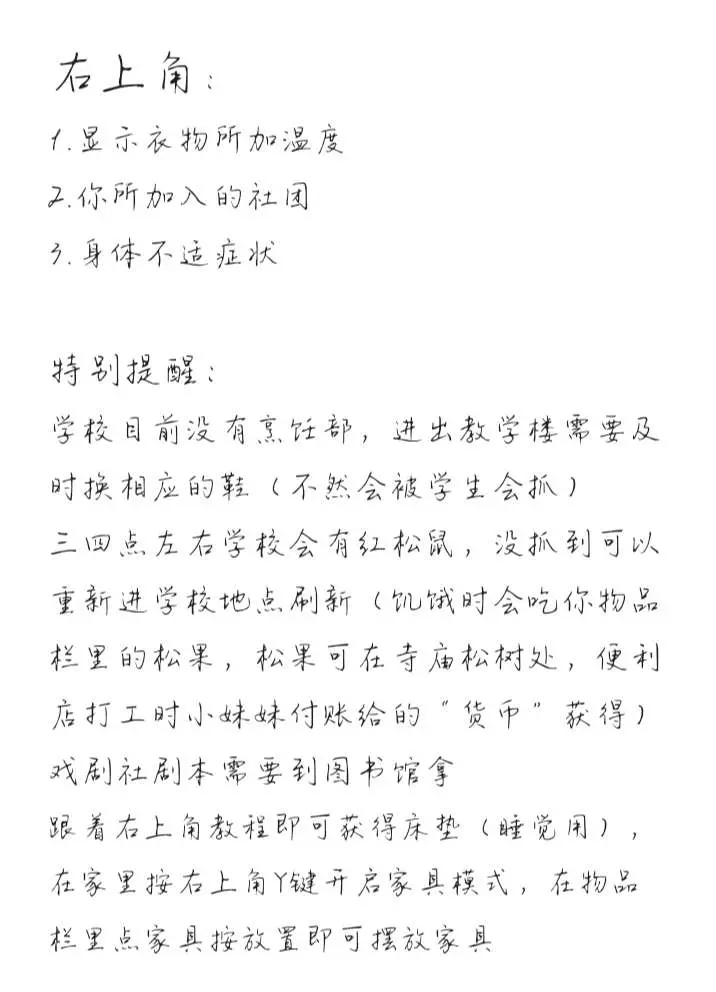 右上角：
1.显示衣物所加温度
2.你所加入的社团
3.身体不适症状
特别提醒：
学校目前没有烹饪部，进出教学楼需要及
时换相应的鞋（不然会被学生会抓）
三四点左右学校会有红松鼠，没抓到可以
重新进学校地点刷新（饥饿时会吃你物品
栏里的松果，松果可在寺庙松树处，便利
店打工时小妹妹付账给的“货币”获得）
戏剧社剧本需要到图书馆拿
跟着右上角教程即可获得床垫（睡觉用），
在家里按右上角Y键开启家具模式，在物品
栏里点家具按放置即可摆放家具